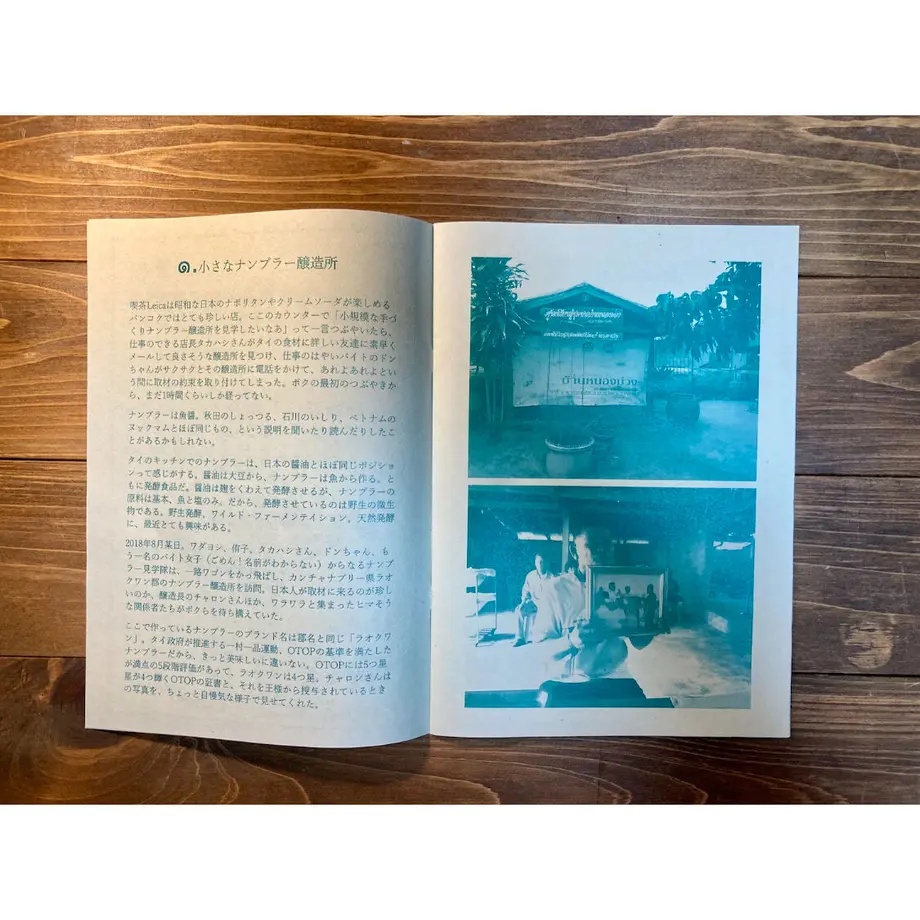 ๑. 小さなナンプラー醸造所
喫茶Leicaは昭和な日本のナポリタンやクリームソーダが楽しめる
バンコクではとても珍しい店。ここのカウンターで「小規模な手づ
くりナンプラー醸造所を見学したいなあ」って一言つぶやいたら、
仕事のできる店長タカハシさんがタイの食材に詳しい友達に素早く
メールして良さそうな醸造所を見つけ、仕事のはやいバイトのドン
ちゃんがサクサクとその醸造所に電話をかけて、あれよあれよとい
う間に取材の約束を取り付けてしまった。ボクの最初のつぶやきか
ら、まだ1時間くらいしか経ってない。
ナンプラーは魚醤。秋田のしょっつる、石川のいしり、ベトナムの
ヌックマムとほぼ同じもの、という説明を聞いたり読んだりしたこ
とがあるかもしれない。
タイのキッチンでのナンプラーは、日本の醤油とほぼ同じポジショ
ンって感じがする。醤油は大豆から、ナンプラーは魚から作る。と
もに発酵食品だ。醤油は麹をくわえて発酵させるが、ナンプラーの
原料は基本、魚と塩のみ。だから、発酵させているのは野生の微生
物である。野生発酵、ワイルド・ファーメンテイション。天然発酵
に、最近とても興味がある。
2018年8月某日。ワダヨシ、侑子、タカハシさん、ドンちゃん、も
う一名のバイト女子(ごめん！名前がわからない)からなるナンプ
ラー見学隊は、一路ワゴンをかっ飛ばし、カンチャナブリー県ラオ
クワン郡のナンプラー醸造所を訪問。日本人が取材に来るのが珍し
いのか、醸造長のチャロンさんほか、ワラワラと集まったヒマそう
な関係者たちがボクらを待ち構えていた。
ここで作っているナンプラーのブランド名は郡名と同じ「ラオクワ
ン」。タイ政府が推進する一村一品運動、OTOPの基準を満たした
ナンプラーだから、きっと美味しいに違いない。OTOPには5つ星
が満点の5段階評価があって、ラオクワンは4つ星。チャロンさんは
星が4つ輝くOTOPの証書と、それを王様から授与されているとき
の写真を、ちょっと自慢気な様子で見せてくれた。
บ้านหนองม่วง